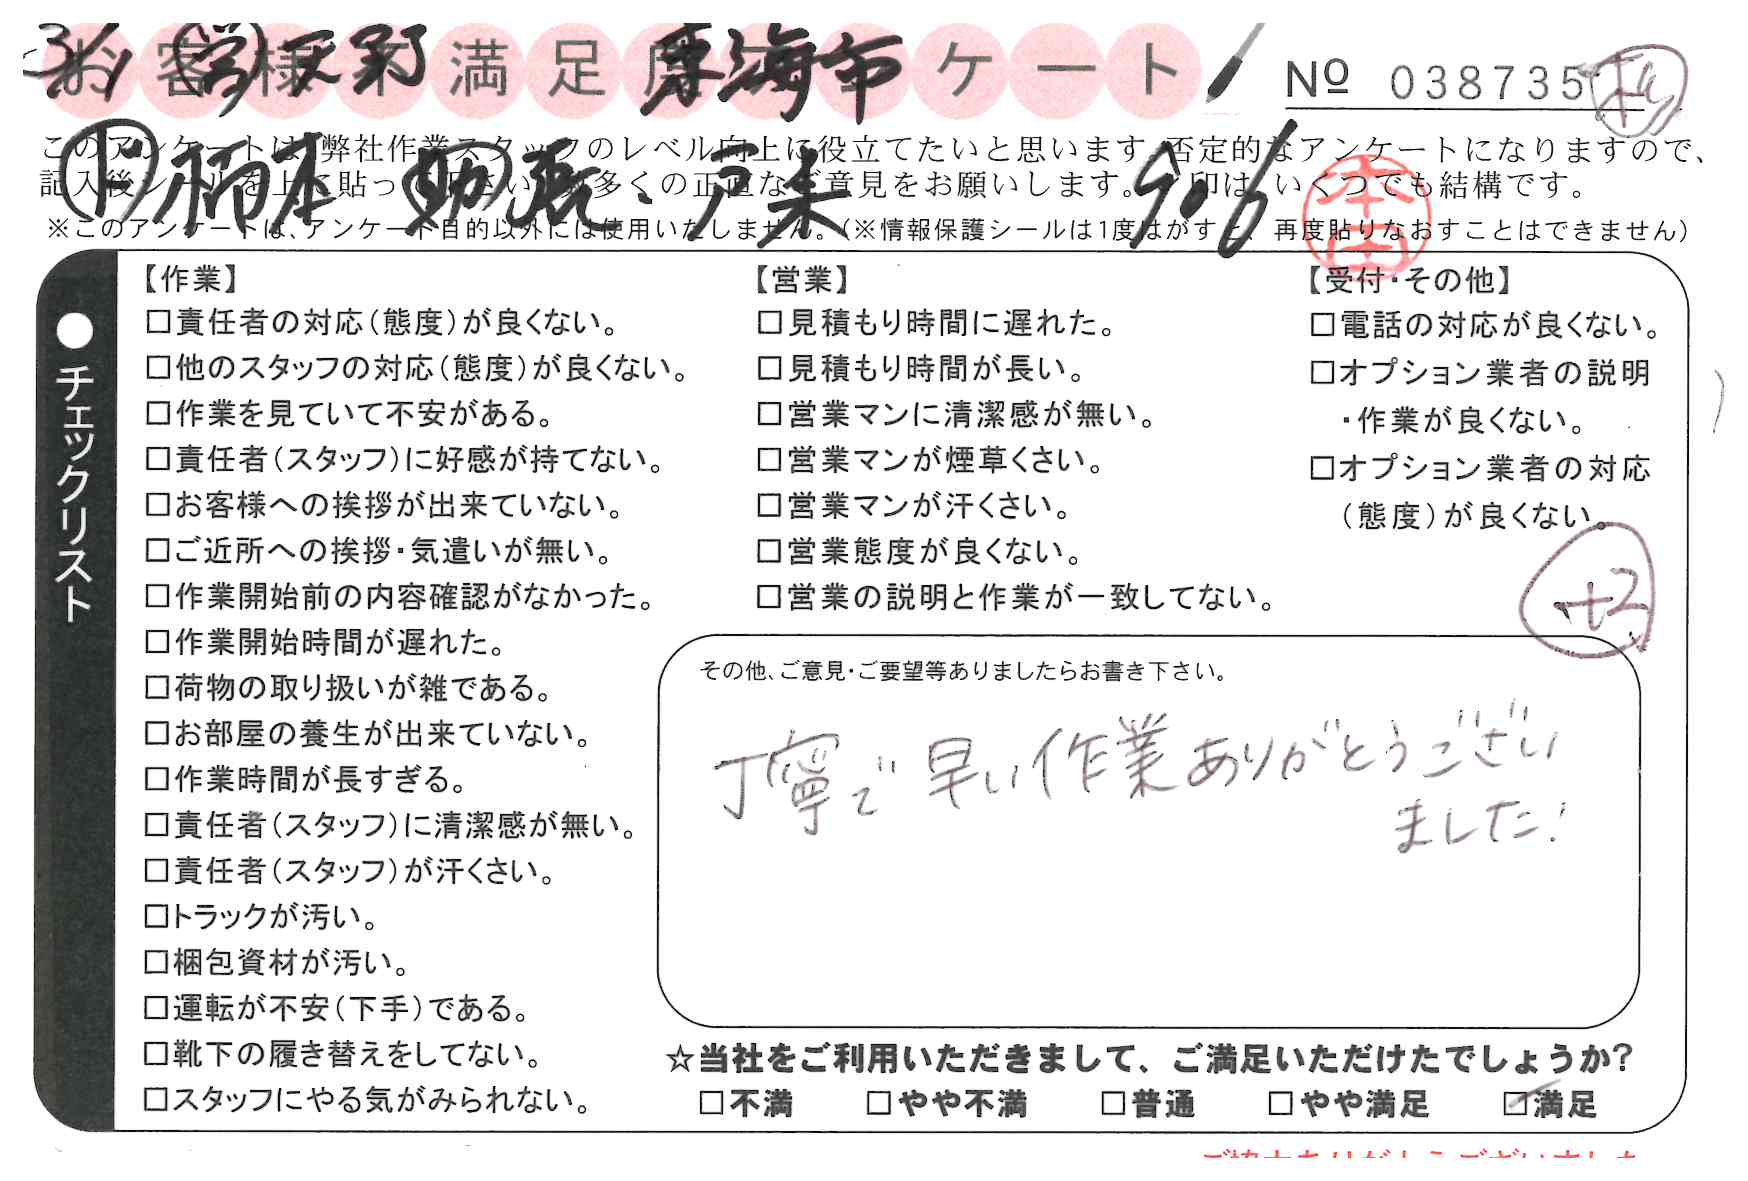 3/1 営 天野 東海市
お客様不満足度アンケート
№ 038735
このアンケートは、弊社作業スタッフのレベル向上に役立てたいと思います。否定的なアンケートになりますので、
記入後シールを上に貼って下さい。数多くの正直なご意見をお願いします。✓印は、いくつでも結構です。
柿本 助 戸来 906
本田
※このアンケートは、アンケート目的以外には使用いたしません。(※情報保護シールは1度はがすと、再度貼りなおすことはできません)
●チェックリスト
【作業】
□責任者の対応(態度)が良くない。
□他のスタッフの対応(態度)が良くない。
□作業を見ていて不安がある。
□責任者(スタッフ)に好感が持てない。
□お客様への挨拶が出来ていない。
□ご近所への挨拶・気遣いが無い。
□作業開始前の内容確認がなかった。
□作業開始時間が遅れた。
□荷物の取り扱いが雑である。
□お部屋の養生が出来ていない。
□作業時間が長すぎる。
□責任者(スタッフ)に清潔感が無い。
□責任者(スタッフ)が汗くさい。
□トラックが汚い。
□梱包資材が汚い。
□運転が不安(下手)である。
□靴下の履き替えをしてない。
□スタッフにやる気がみられない。
【営業】
□見積もり時間に遅れた。
□見積もり時間が長い。
□営業マンに清潔感が無い。
□営業マンが煙草くさい。
□営業マンが汗くさい。
□営業態度が良くない。
□営業の説明と作業が一致してない。
【受付・その他】
□電話の対応が良くない。
□オプション業者の説明
・作業が良くない。
□オプション業者の対応
(態度)が良くない。
+2
その他、ご意見・ご要望等ありましたらお書き下さい。
丁寧で早い作業ありがとうござい
ました!
☆当社をご利用いただきまして、ご満足いただけたでしょうか?
□不満 □やや不満 □普通 □やや満足 ☑満足
ご協力ありがとうございました